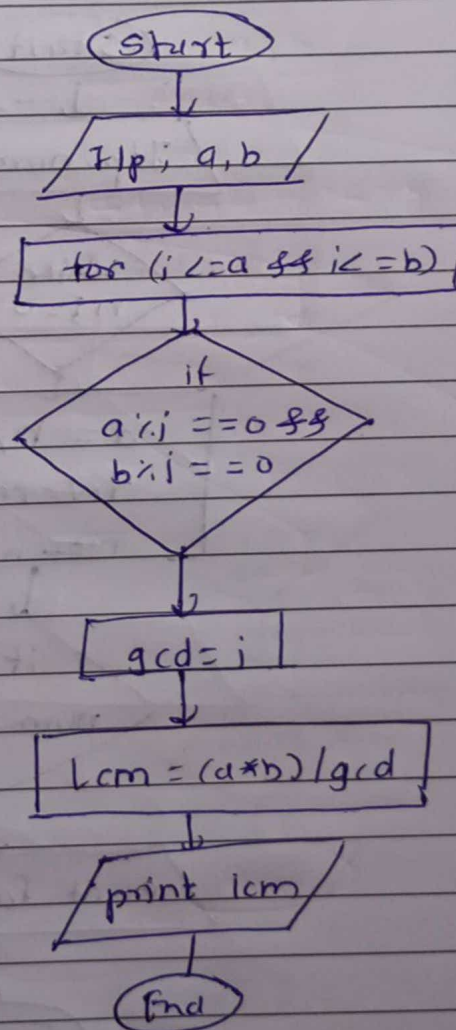 Start
I/p ; a,b
for (i <= a && i <= b)
if
a % i == 0 &&
b % i == 0
gcd = i
Lcm = (a*b) / gcd
print lcm
End